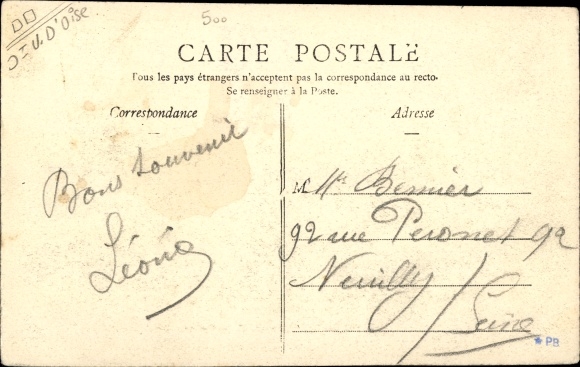 500
S-et-O. V. D'Oise
CARTE POSTALE
Tous les pays étrangers n'acceptent pas la correspondance au recto.
Se renseigner à la Poste.
Correspondance
Adresse
Bons souvenir
Léonie
M Mlle Bernier
92 rue Peronet 92
Neuilly /
Seine
PB